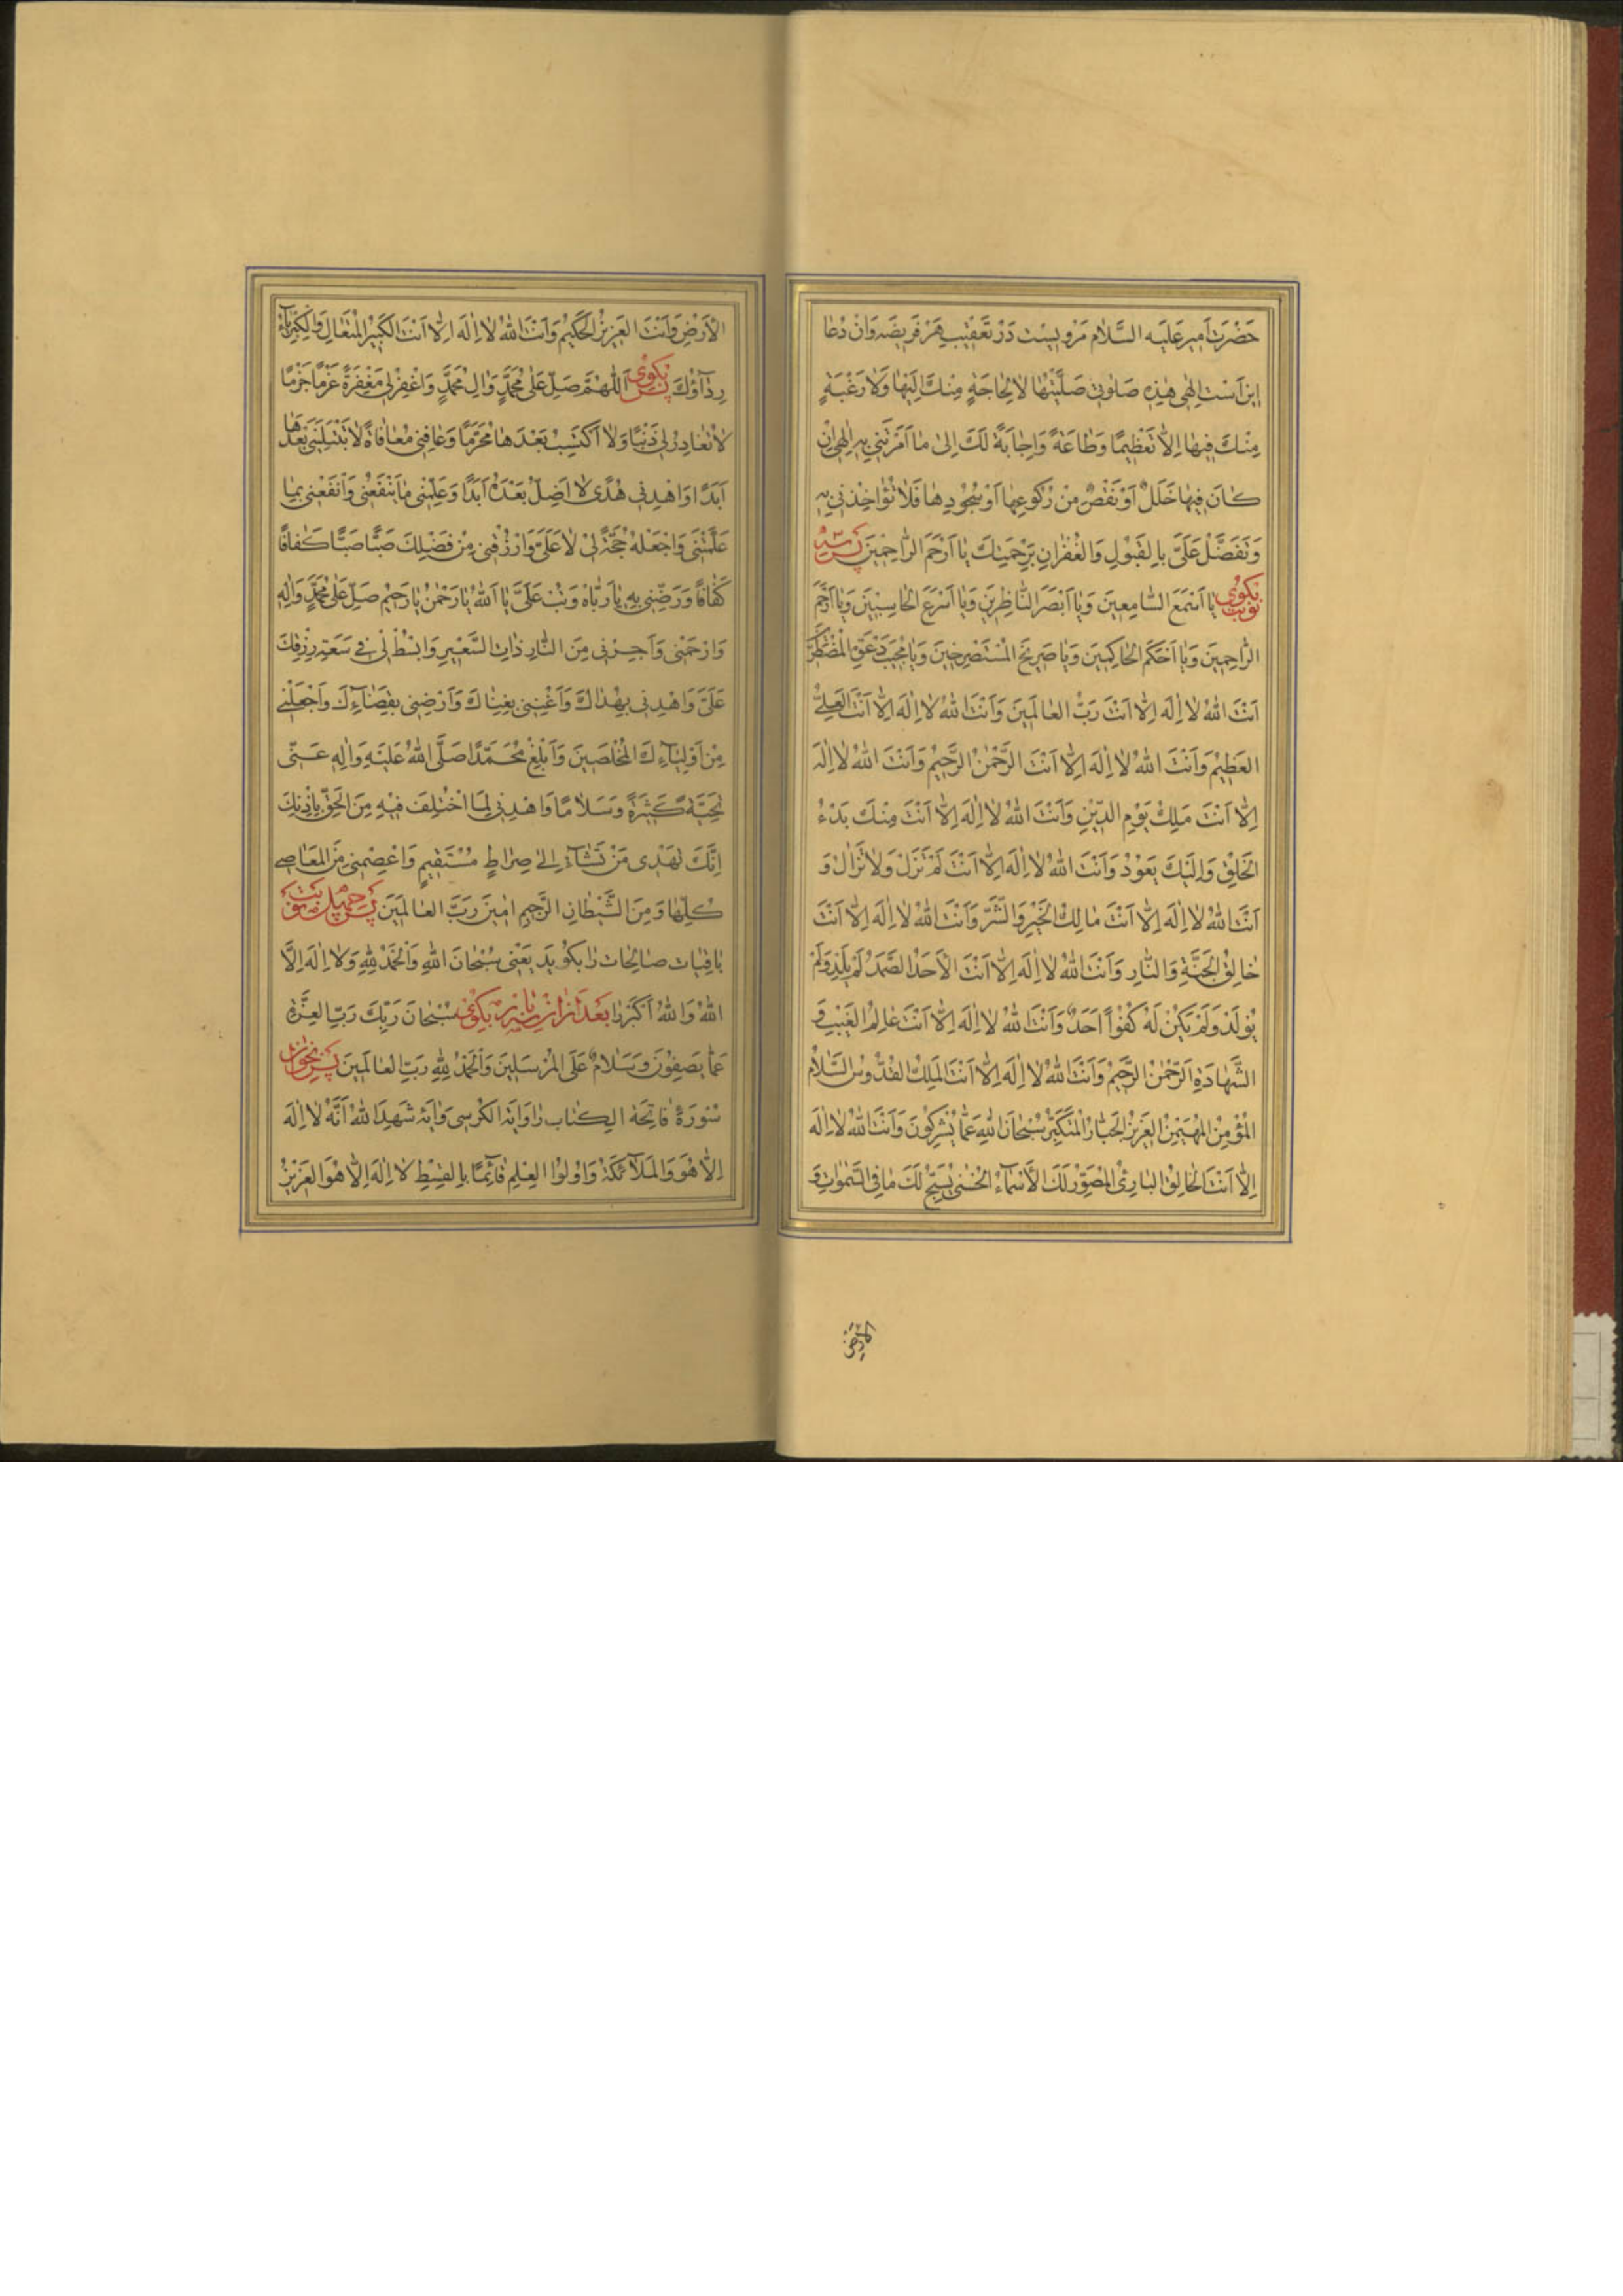 حَضْرَت اَمير عَلَيْه السَّلام مَرْويسْت دَرْ تَعْقيبِ هَرْ فَريضَه وَانْ دُعا
اين اَسْت اِلٰهى هٰذِهِ صَلٰوتى صَلَّيْتُها لا لِحاجَةٍ مِنْكَ اِلَيْها وَلا رَغْبَةٍ
مِنْكَ فيها اِلّا تَعْظيمًا وَطاعَةً وَاِجابَةً لَكَ اِلىٰ ما اَمَرْتَنى بِهِ اِلٰهى اِنْ
كانَ فيها خَلَلٌ اَوْ نَقْصٌ مِنْ رُكُوعِها اَوْ سُجُودِها فَلا تُؤاخِذْنى بِهِ
وَتَفَضَّلْ عَلَىَّ بِالقَبُولِ وَالغُفْرانِ بِرَحْمَتِكَ يا اَرْحَمَ الرّاحِمينَ پَس سه
نوبت بگوى يا اَسْمَعَ السّامِعينَ وَيا اَبْصَرَ النّاظِرينَ وَيا اَسْرَعَ الحاسِبينَ وَيا اَرْحَمَ
الرّاحِمينَ وَيا اَحْكَمَ الحاكِمينَ وَيا صَريخَ المُسْتَصْرِخينَ وَيا مُجيبَ دَعْوَةِ المُضْطَرّينَ
اَنْتَ اللهُ لا اِلٰهَ اِلّا اَنْتَ رَبُّ العالَمينَ وَاَنْتَ اللهُ لا اِلٰهَ اِلّا اَنْتَ العَلِىُّ
العَظيمُ وَاَنْتَ اللهُ لا اِلٰهَ اِلّا اَنْتَ الرَّحْمٰنُ الرَّحيمُ وَاَنْتَ اللهُ لا اِلٰهَ
اِلّا اَنْتَ مَلِكُ يَوْمِ الدّينِ وَاَنْتَ اللهُ لا اِلٰهَ اِلّا اَنْتَ مِنْكَ بَدْءُ
الخَلْقِ وَاِلَيْكَ يَعُودُ وَاَنْتَ اللهُ لا اِلٰهَ اِلّا اَنْتَ لَمْ تَزَلْ وَلا تَزالُ وَ
اَنْتَ اللهُ لا اِلٰهَ اِلّا اَنْتَ مالِكُ الخَيْرِ وَالشَّرِّ وَاَنْتَ اللهُ لا اِلٰهَ اِلّا اَنْتَ
خالِقُ الجَنَّةِ وَالنّارِ وَاَنْتَ اللهُ لا اِلٰهَ اِلّا اَنْتَ الاَحَدُ الصَّمَدُ لَمْ يَلِدْ وَلَمْ
يُولَدْ وَلَمْ يَكُنْ لَهُ كُفُوًا اَحَدٌ وَاَنْتَ اللهُ لا اِلٰهَ اِلّا اَنْتَ عالِمُ الغَيْبِ وَ
الشَّهادَةِ الرَّحْمٰنُ الرَّحيمُ وَاَنْتَ اللهُ لا اِلٰهَ اِلّا اَنْتَ المَلِكُ القُدُّوسُ السَّلامُ
المُؤْمِنُ المُهَيْمِنُ العَزيزُ الجَبّارُ المُتَكَبِّرُ سُبْحانَ اللهِ عَمّا يُشْرِكُونَ وَاَنْتَ اللهُ لا اِلٰهَ
اِلّا اَنْتَ الخالِقُ البارِئُ المُصَوِّرُ لَكَ الاَسْماءُ الحُسْنىٰ يُسَبِّحُ لَكَ ما فِى السَّمٰواتِ وَ
الارض
الاَرْضِ وَاَنْتَ العَزيزُ الحَكيمُ وَاَنْتَ اللهُ لا اِلٰهَ اِلّا اَنْتَ الكَبيرُ المُتَعالِ وَالكِبْرِياءُ
رِداؤُكَ پس بگوى اَللّٰهُمَّ صَلِّ عَلىٰ مُحَمَّدٍ وَالِ مُحَمَّدٍ وَاغْفِرْلى مَغْفِرَةً عَزْمًا جَزْمًا
لا تُغادِرُ لى ذَنْبًا وَلا اَكْتَسِبُ بَعْدَها مُحَرَّمًا وَعافِنى مُعافاةً لا تَبْتَلِيَنى بَعْدَها
اَبَدًا وَاهْدِنى هُدًى لا اَضِلُّ بَعْدَهُ اَبَدًا وَعَلِّمْنى ما يَنْفَعُنى وَانْفَعْنى بِما
عَلَّمْتَنى وَاجْعَلْهُ حُجَّةً لى لا عَلَىَّ وَارْزُقْنى مِنْ فَضْلِكَ صَبًّا صَبًّا كَفافًا
كَفافًا وَرَضِّنى بِهِ يا رَبّاه وَتُبْ عَلَىَّ يا اَللهُ يا رَحْمٰنُ يا رَحيمُ صَلِّ عَلىٰ مُحَمَّدٍ وَالِهِ
وَارْحَمْنى وَاَجِرْنى مِنَ النّارِ ذاتِ السَّعيرِ وَابْسُطْ لى فى سَعَةِ رِزْقِكَ
عَلَىَّ وَاهْدِنى بِهُداكَ وَاَغْنِنى بِغِناكَ وَاَرْضِنى بِقَضائِكَ وَاجْعَلْنى
مِنْ اَوْلِيائِكَ المُخْلَصينَ وَاَبْلِغْ مُحَمَّدًا صَلَّى اللهُ عَلَيْهِ وَالِهِ عَنّى
تَحِيَّةً كَثيرَةً وَسَلامًا وَاهْدِنى لِمَا اخْتُلِفَ فيهِ مِنَ الحَقِّ بِاِذْنِكَ
اِنَّكَ تَهْدى مَنْ تَشاءُ اِلىٰ صِراطٍ مُسْتَقيمٍ وَاعْصِمْنى مِنَ المَعاصى
كُلِّها وَمِنَ الشَّيْطانِ الرَّجيمِ امينَ رَبَّ العالَمينَ پس چهل نوبت
باقِيات صالِحات را بگويد يَعْنى سُبْحانَ اللهِ وَالحَمْدُ لِلّٰهِ وَلا اِلٰهَ اِلَّا
اللهُ وَاللهُ اَكْبَر را بعد ازان بگوى سُبْحانَ رَبِّكَ رَبِّ العِزَّةِ
عَمّا يَصِفُونَ وَسَلامٌ عَلَى المُرْسَلينَ وَالحَمْدُ لِلّٰهِ رَبِّ العالَمينَ پس بخوان
سُورَهٔ فاتِحَة الكِتاب را وَايَة الكُرسى وَايَهٔ شَهِدَ اللهُ اَنَّهُ لا اِلٰهَ
اِلّا هُوَ وَالمَلائِكَةُ وَاُولُوا العِلْمِ قائِمًا بِالقِسْطِ لا اِلٰهَ اِلّا هُوَ العَزيزُ